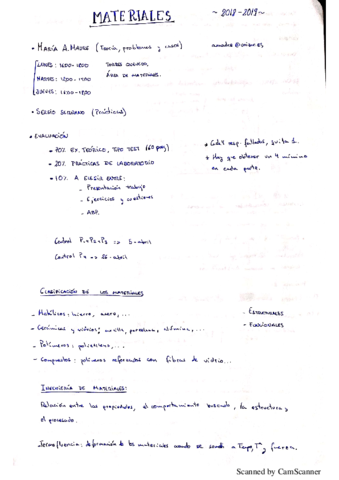 MATERIALES ~ 2018-2019 ~
• María A. Madre (Teoría, problemas y casos)
LUNES: 16:00 - 18:00
MARTES: 12:00 - 13:00
JUEVES: 16:00 - 18:00
Área de materiales.
• SERGIO (Prácticas)
• EVALUACIÓN
• 70% EX. TEÓRICO, TIPO TEST (60 preg)
• 20% PRÁCTICAS DE LABORATORIO
• 10% A ELEGIR ENTRE:
- Presentación trabajo
- Ejercicios y cuestiones
- ABP.
• Cada resp. falladas, quita 1.
• Hay que obtener un 4 mínimo
en cada parte.
Control => 5-abril
Control => 26-abril
CLASIFICACIÓN DE LOS MATERIALES
- Metálicos: hierro, acero, ...
- Cerámicos y vidrios: arcilla, porcelana, alúmina, ...
- Polímeros: polietileno, ...
- Compuestos: polímeros reforzados con fibras de vidrio...
- ESTRUCTURALES
- FUNCIONALES
INGENIERÍA DE MATERIALES:
Relación entre las propiedades, el comportamiento buscado, la estructura y
el procesado.
Termofluencia: deformación de los materiales cuando se somete a Tiempo, Tª y fuerza.
Scanned by CamScanner